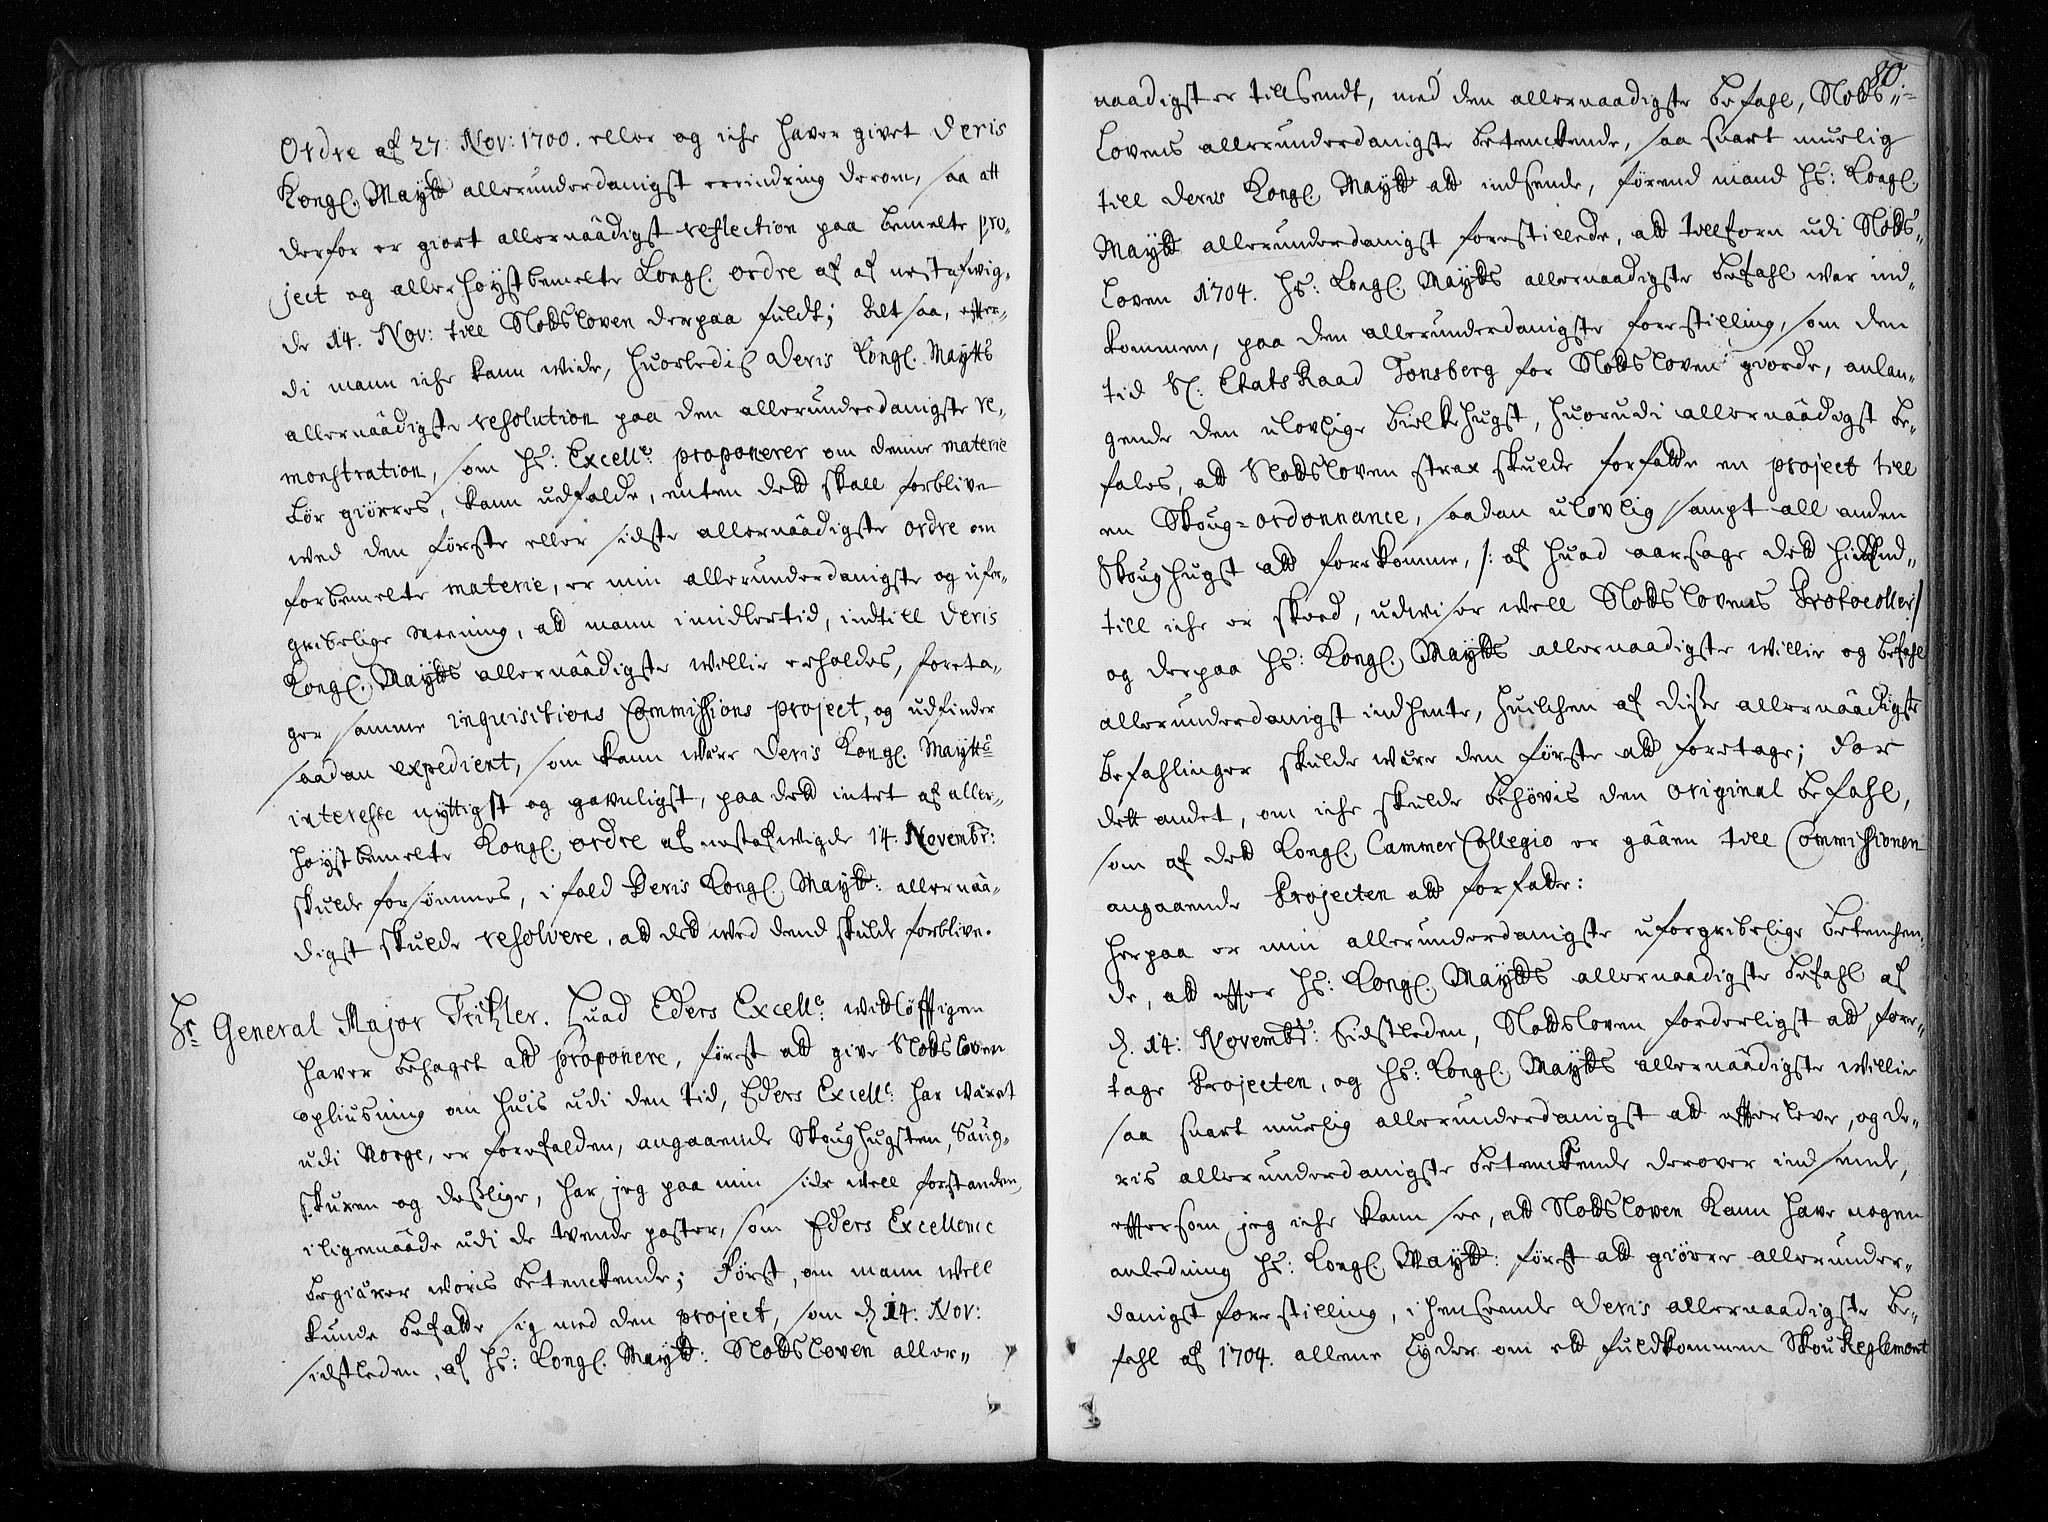 Ordre af 27: Nov: 1700. eller og iche haver givet Deris
Kongl. Maytt allerunderdanigst erindring derom, saa att
derfor er giort allernåådigst reflection paa bemelte pro-
ject og allerhøystbemelte Kongl. ordre af af nestafwig-
de 14. Nov: till Slottsloven derpaa fuldt; Alt saa, effter-
di mann iche kann wide, huorledis Deris Kongl. Maytts
allernåådigste resolution paa den allerunderdanigste re-
monstration, som Hs: Excellce proponerer om denne materie
bør giørres, kann udfalde, enten dett skall forblive
wed den første eller sidste allernåådigste ordre om
forbemelte materie, er min allerunderdanigste og ufor-
gribelige Meening, att mann imidlertid, indtill Deris
Kongl. Maytts allernåådigste willie erholdes, foreta-
ger samme inquisitions Commissions project, og udfinder
saadan expedient, som kann wære Deris Kongl. Maytts
interesse nyttigst og gavnligst, paa dett intet af aller-
høystbemelte Kongl. ordre af nestafwigde 14. Novembr:
skulde forsømmes, i fald Deris Kongl. Maytt: allernåå-
digst skulde resolvere, att dett wed dend skulde forblive.
Hr General Major Tritzler. Huad Eders Excellce witløfftigen
haver behaget att proponere, først att give Slottsloven
opliusning om huis udi den tid, Eders Excellce har wæret
udi Norge, er forefalden, angaaende Skoughugsten, Saug-
skuren og desslige, har jeg paa min side well forstanden,
iligemaade udi de tvende poster, som Eders Excellence
begiærer woris betenckende; Først, om mann well
kunde befatte sig med den project, som d. 14. Nov:
sidstleden, af Hs: Kongl. Maytt: Slottsloven aller-
80.
naadigst er tillsendt, med den allernaadigste befahl, Slotts-
Lovens allerunderdanigste betenckende, saa snart muelig
till Deris Kongl. Maytt att indsende, førend mand Hs: Kongl.
Maytt allerunderdanigst forestillede, att tillforn udi Slotts-
Loven 1704. Hs: Kongl. Maytts allernaadigste befahl war ind-
kommen, paa den allerunderdanigste forestilling, som den
tid Sl. Etats Raad Tonsberg for Slottsloven giorde, anlan-
gende den ulovlige Bielkehugst, huorudi allernåådigst be-
fales, att Slottsloven strax skulde forfatte en project till
en Skoug-ordonnance, saadan ulovlig sampt all anden
Skoughugst att forekomme, /: af huad aarsage dett hidind-
till iche er skeed, udwiser well Slottslovens Protocoller/
og derpaa Hs: Kongl. Maytts allernaadigste willie og befahl
allerunderdanigst indhente, huilchen af disse allernåådigste
befahlinger skulde wære den første att foretage; For
dett andet, om iche skulde behøvis den original befahl,
som af dett Kongl. Cammer Collegio er gååen till Commissionen
angaaende Projecten att forfatte:
Herpaa er min allerunderdanigste uforgribelige betenchen-
de, att effter Hs: Kongl. Maytts allernaadigste befahl af
d. 14: Novembr: Sidstleden, Slottsloven forderligst att fore-
tage Projecten, og Hs: Kongl. Maytts allernåådigste willie
saa snart muelig allerunderdanigst att effterleve, og de-
ris allerunderdanigste betenckende derover indsende,
effter som jeg iche kann see, att Slottsloven kann have nogen
anledning Hs: Kongl. Maytt: først att giøre allerunder-
danigst forestilling, ihenseende Deris allernaadigste be-
fahl af 1704. allene lyder om ett fuldkommen Skou Reglement